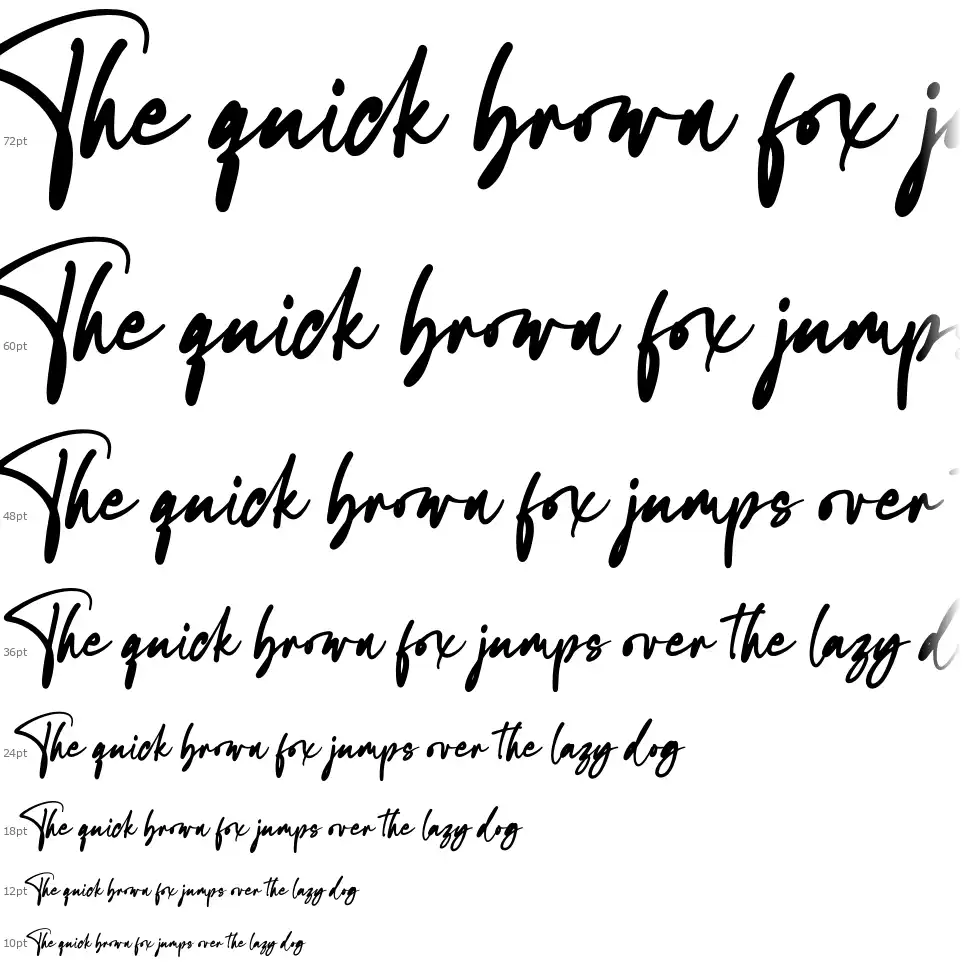 72pt The quick brown fox j
60pt The quick brown fox jumps
48pt The quick brown fox jumps over
36pt The quick brown fox jumps over the lazy d
24pt The quick brown fox jumps over the lazy dog
18pt The quick brown fox jumps over the lazy dog
12pt The quick brown fox jumps over the lazy dog
10pt The quick brown fox jumps over the lazy dog